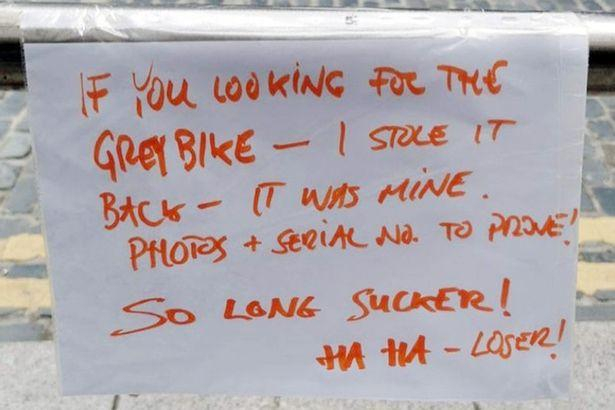 IF YOU LOOKING FOR THE
GREY BIKE — I STOLE IT
BACK — IT WAS MINE.
PHOTOS + SERIAL NO. TO PROVE!
SO LONG SUCKER!
HA HA – LOSER!